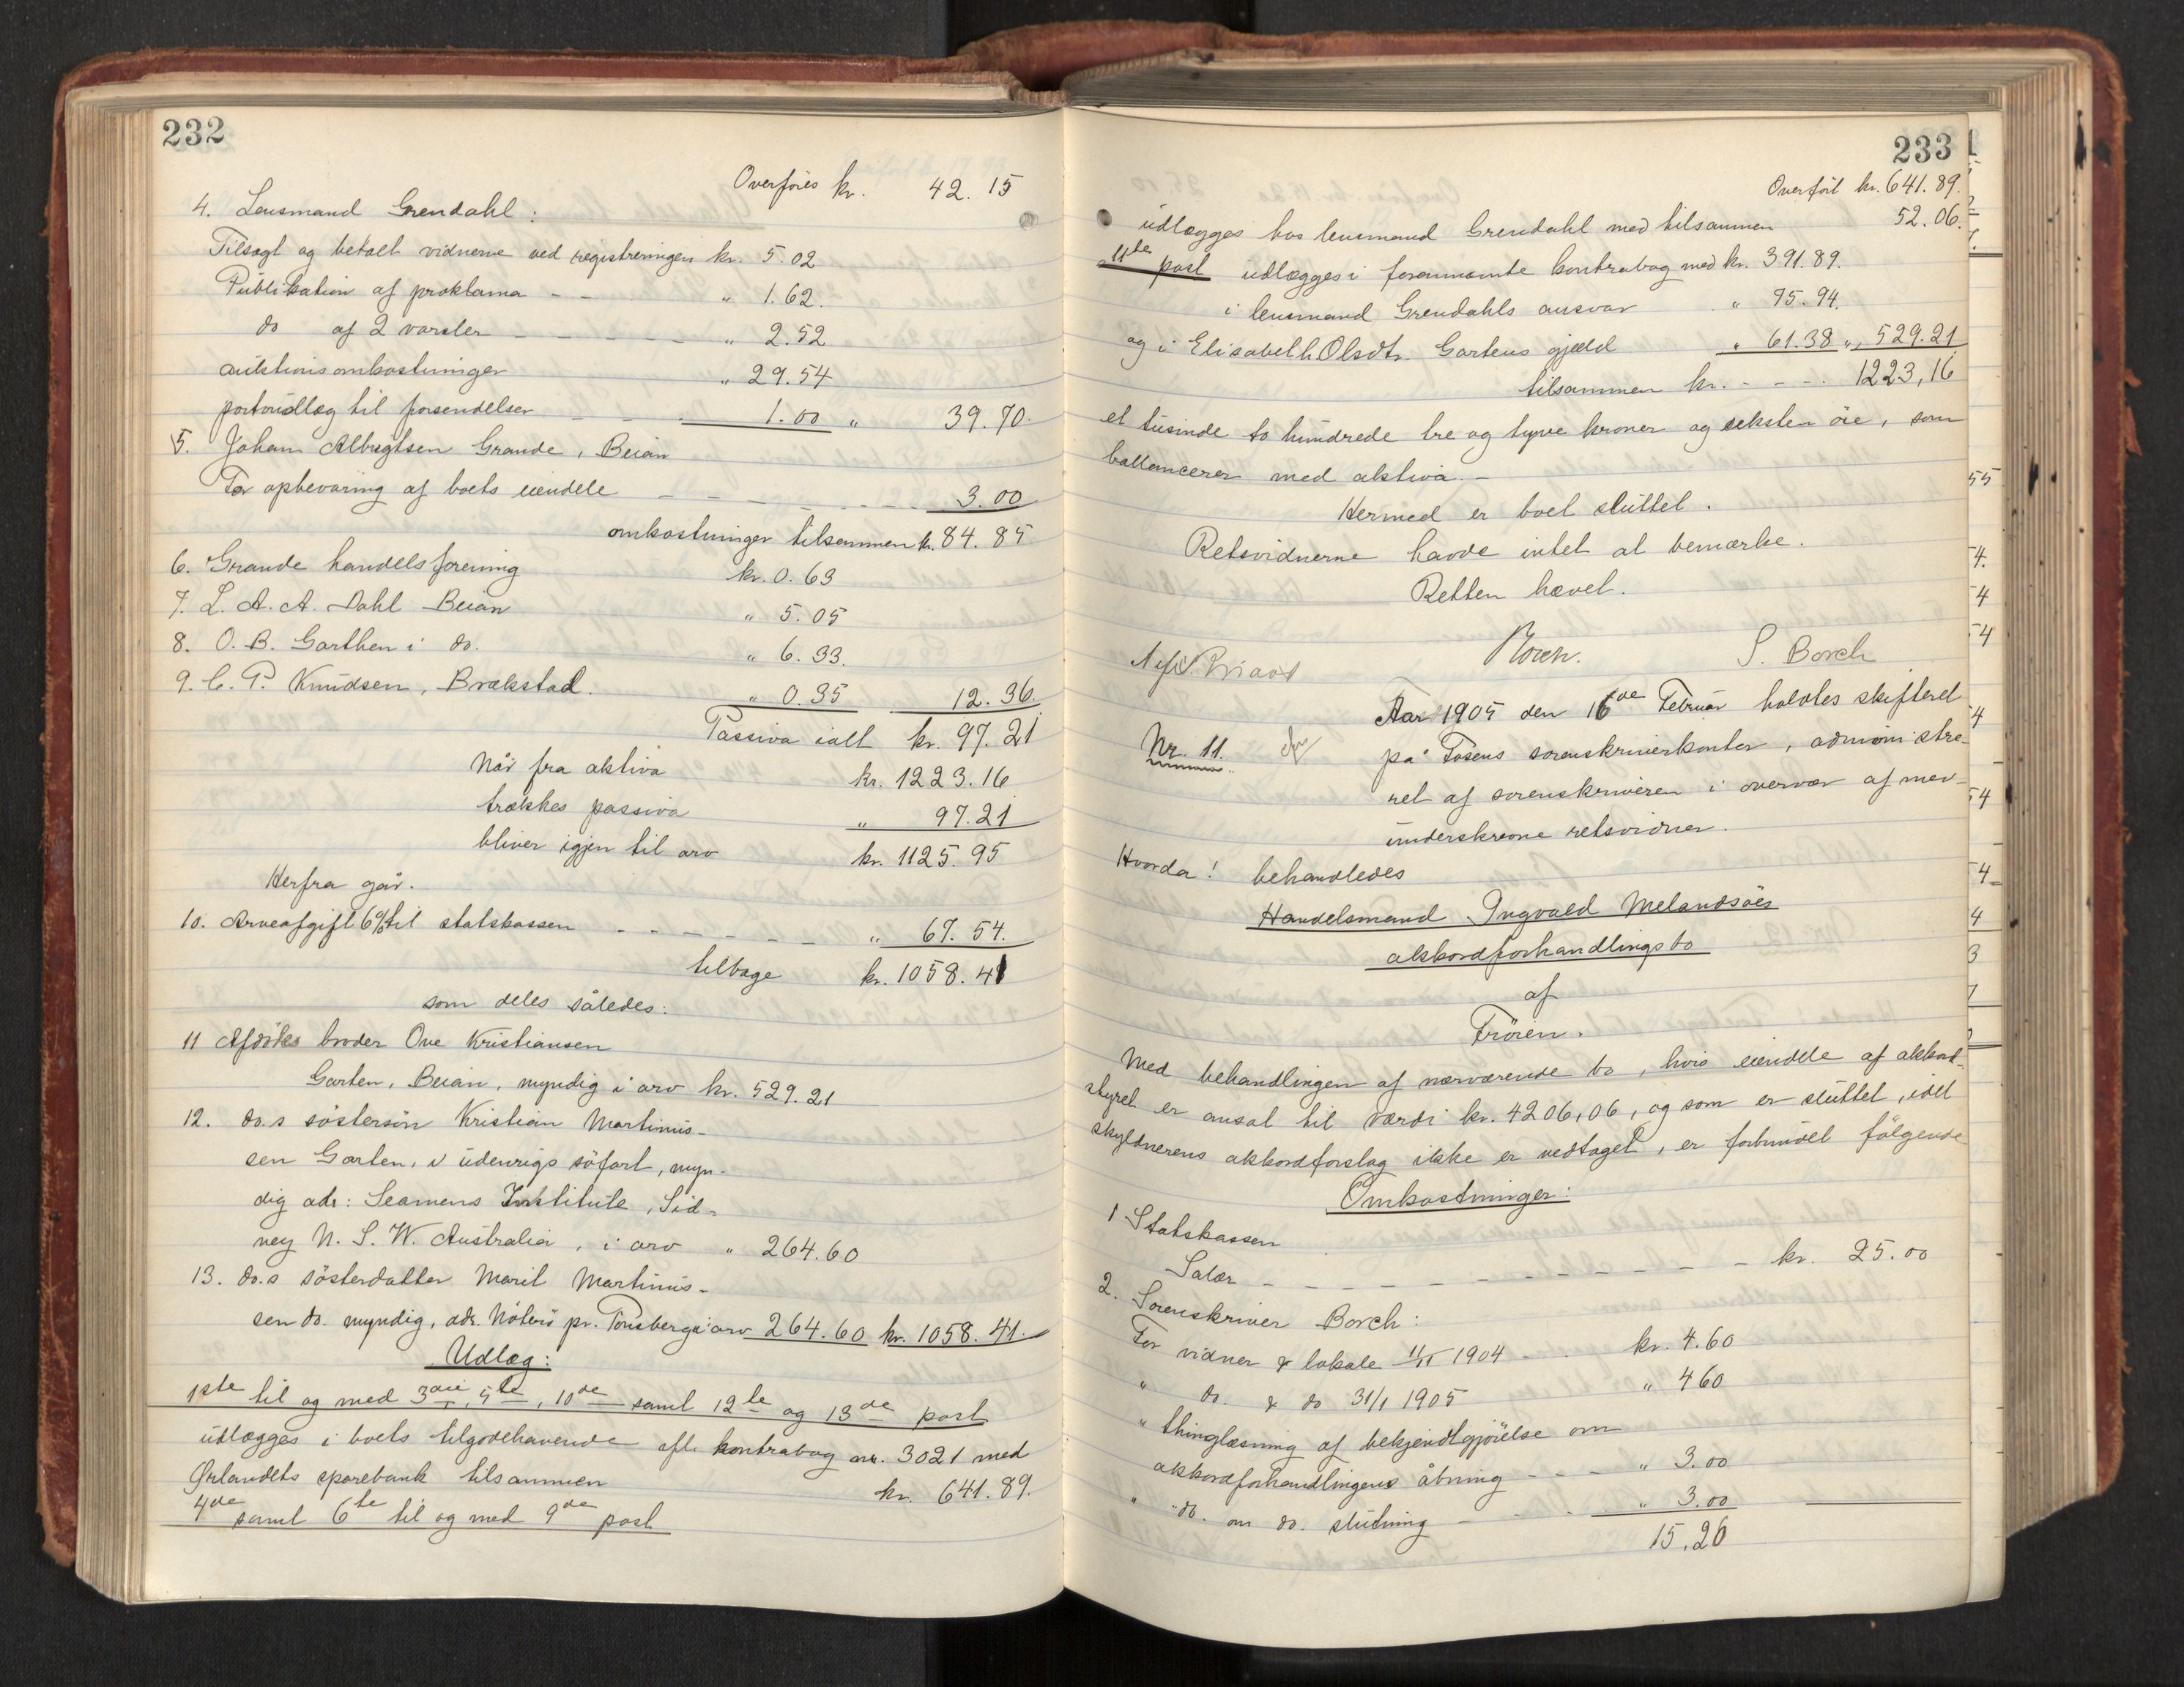 232
Overføres kr. 42.15
4. Lensmand Grendahl:
Tilsagt og betalt vidnerne ved registreringen kr. 5.02
Publikation af proklama - - " 1.62.
do af 2 varsler - - - - - " 2.52
auktionsomkostninger " 29.54
portoudlæg til forsendelser - - - 1.00 " 39.70.
5. Johan Albrigtsen Grande, Beian
For opbevaring af boets eiendele - - - - - - 3.00
omkostninger tilsammen kr. 84.85
6. Grande handelsforening kr. 0.63
7. L. A. A. Dahl Beian " 5.05
8. O. B. Garthen i do. " 6.33.
9. C. P. Knudsen, Brækstad. " 0.35 12.36.
Passiva ialt kr. 97.21
Når fra aktiva kr. 1223.16
trækkes passiva " 97.21
bliver igjen til arv kr. 1125.95
Herfra går.
10. Arveafgift 6% til statskassen - - - - - - " 67.54.
tilbage kr. 1058.41
som deles således:
11 Afdødes broder Ove Kristiansen
Garten, Beian, myndig i arv kr. 529.21
12. do.s søstersøn Kristian Martinus-
sen Garten, i udenrigs søfart, myn-
dig adr: Seamens Institute, Sid-
ney N. S. W. Australia, i arv " 264.60
13. do.s søsterdatter Marit Martinus-
sen do. myndig, adr. Nøterø pr. Tønsberg i arv 264.60 kr. 1058.41.
Udlæg:
1ste til og med 3die, 5te, 10de samt 12te og 13de post
udlægges i boets tilgodehavende efter kontrabog nr. 3021 med
Ørlandets sparebank tilsammen kr. 641.89.
4de samt 6te til og med 9de post
233
Overført kr. 641.89.
udlægges hos lensmand Grendahl med tilsammen 52.06.
11te post udlægges i forannævnte kontrabog med kr. 391.89.
i lensmand Grendahls ansvar " 75.94.
og i Elisabeth Olsdtr. Gartens gjæld " 61.38 " 529.21
tilsammen kr. - - - 1223,16
et tusinde to hundrede tre og tyve kroner og seksten øre, som
ballancerer med aktiva. -
Hermed er boet sluttet.
Retsvidnerne havde intet at bemærke.
Retten hævet.
Borch. S. Borch
Aar 1905 den 16de Februar holdtes skifteret
Nr. 11. på Fosens sorenskriverkontor, administre-
ret af sorenskriveren i overvær af med-
underskrevne retsvidner.
Hvorda! behandledes
Handelsmand Ingvald Melandsøes
akkordforhandlingsbo
af
Frøien.
Med behandlingen af nærværende bo, hvis eiendele af akkord-
styret er ansat til værdi kr. 4206,06, og som er sluttet, idet
skyldnerens akkordforslag ikke er vedtaget, er forbundet følgende
Omkostninger:
1 Statskassen
Salær - - - - - - - - - - kr. 25.00
2. Sorenskriver Borch:
For vidner & lokale 11/11 1904 - - kr. 4.60
" do. & do 31/1 1905 " 460
" thinglæsning af bekjendtgjørelse om
akkordforhandlingens åbning - - - " 3.00
" do. om do. slutning - - - " 3.00
15.20